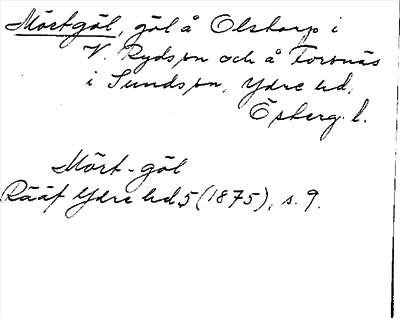 Mörtgöl, göl å Olstorp i
V. Ryds sn och å Torsnäs
i Sunds sn, Ydre hd,
Österg. l.
Mört-göl
Rääf Ydre hd 5 (1875), s. 9.